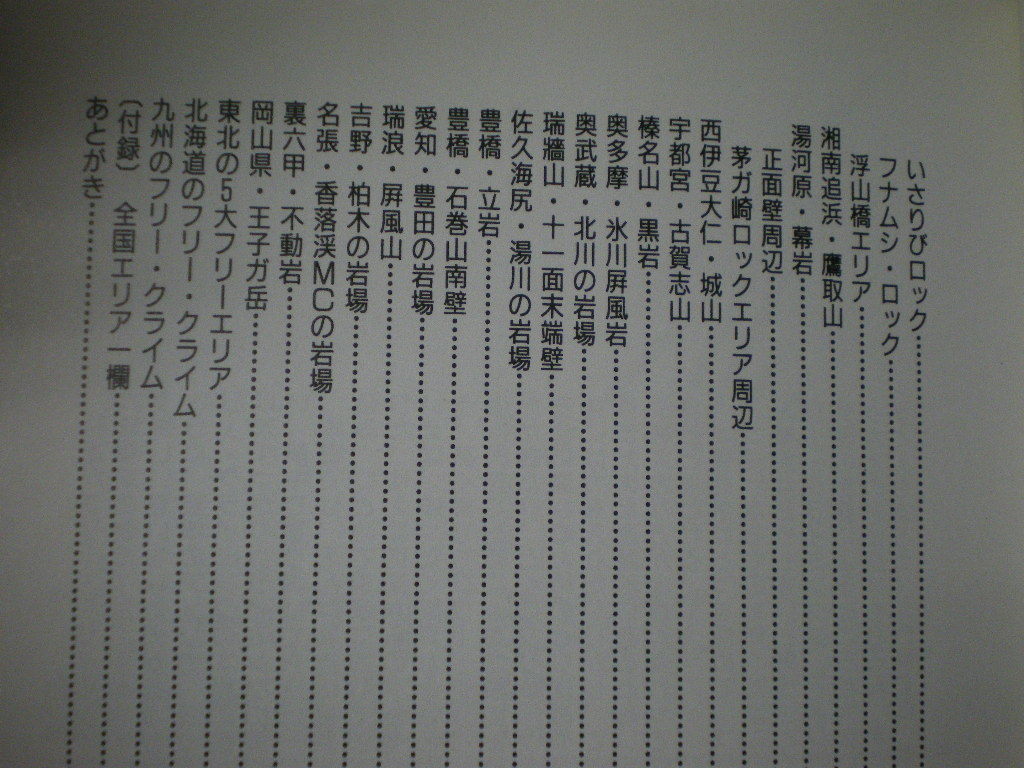 いさりびロック
フナムシ・ロック
浮山橋エリア
湘南追浜・鷹取山
湯河原・幕岩
正面壁周辺
茅ガ崎ロックエリア周辺
西伊豆大仁・城山
宇都宮・古賀志山
榛名山・黒岩
奥多摩・氷川屛風岩
奥武蔵・北川の岩場
瑞牆山・十一面末端壁
佐久海尻・湯川の岩場
豊橋・立岩
豊橋・石巻山南壁
愛知・豊田の岩場
瑞浪・屛風山
吉野・柏木の岩場
名張・香落渓MCの岩場
裏六甲・不動岩
岡山県・王子ガ岳
東北の5大フリーエリア
北海道のフリー・クライム
九州のフリー・クライム
〔付録〕 全国エリア一欄
あとがき